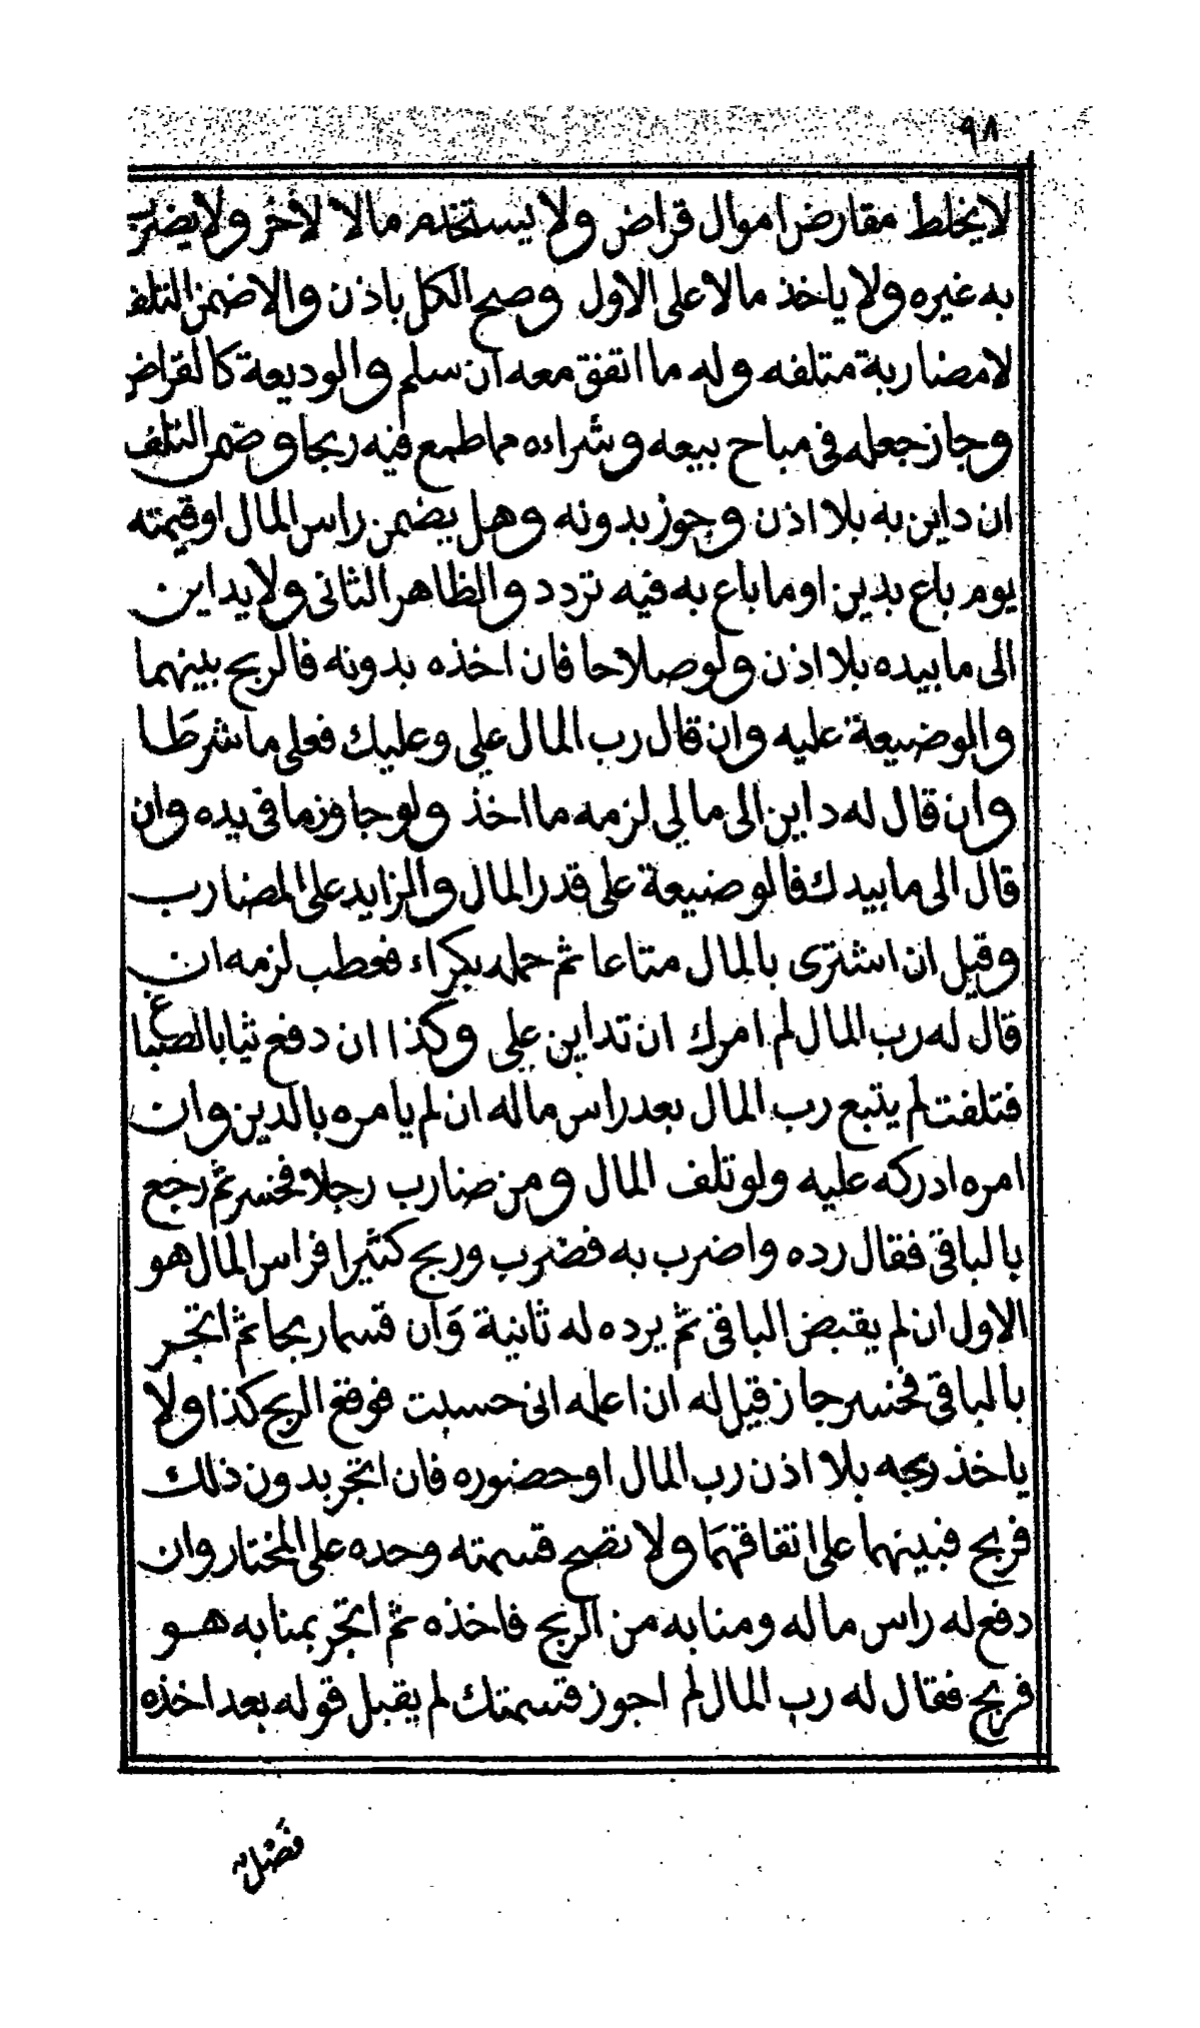 ٩٨
لا يخلط مقارض اموال قراض ولا يستخدم مالا لاخر ولا يضرب
به غيره ولا ياخذ مالا على الاول وصح الكل باذن والا ضمن التلف
لا مضاربة متلفه وله ما اتفق معه ان سلم والوديعة كالقراض
وجاز جعله فى مباح بيعه وشراءه مما طمع فيه ربحا وضمن التلف
ان داين به بلا اذن وجوز بدونه وهل يضمن راس المال او قيمته
يوم باع بدين او ما باع به فيه تردد والظاهر الثانى ولا يداين
الى ما بيده بلا اذن ولو صلاحا فان اخذه بدونه فالربح بينهما
والوضيعة عليه وان قال رب المال علي وعليك فعلى ما شرطَا
وان قال له داين الى مالي لزمه ما اخذ ولو جاوز ما فى يده وان
قال الى ما بيدك فالوضيعة على قدر المال والزايد على المضارب
وقيل ان اشترى بالمال متاعا ثم حمله بكراء فعطب لزمه ان
قال له رب المال لم امرك ان تداين علي وكذا ان دفع ثيابا لصباغ
فتلفت لم يتبع رب المال بعد راس ماله ان لم يامره بالدين وان
امره ادركه عليه ولو تلف المال ومن ضارب رجلا فخسر ثم رجع
بالباقى فقال رده واضرب به فضرب وربح كثيرا فراس المال هو
الاول ان لم يقبض الباقى ثم يرده له ثانية وَان قسما ربحا ثم اتجر
بالباقى فخسر جاز قيل له ان اعلمه انى حسبت فوقع الربح كذا ولا
ياخذ ربحه بلا اذن رب المال او حضوره فان اتجر بدون ذلك
فربح فبينهما على اتفاقهمَا ولا تصح قسمته وحده على المختار وان
دفع له راس ماله ومنابه من الربح فاخذه ثم اتجر بمنابه هو
فربح فقال له رب المال لم اجوز قسمتك لم يقبل قوله بعد اخذه